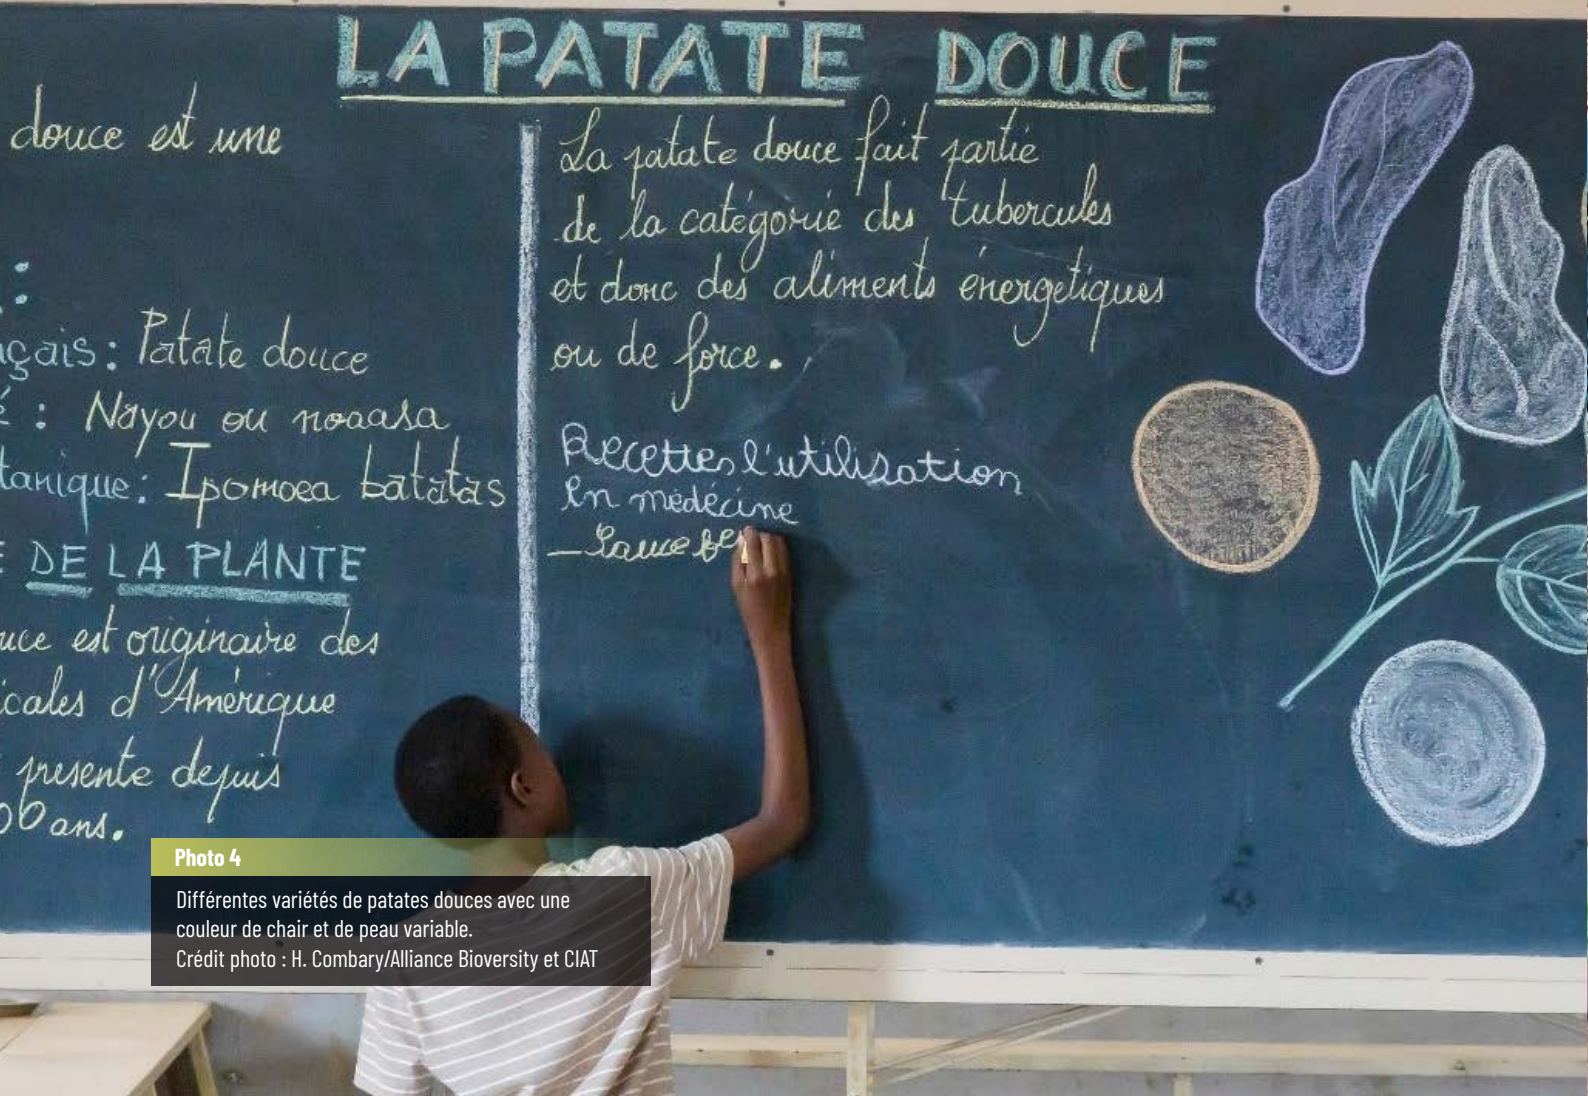 LA PATATE DOUCE
douce est une
:
çais : Patate douce
é : Nayou ou noaasa
tanique : Ipomoea batatas
E DE LA PLANTE
uce est originaire des
icales d'Amérique
présente depuis
00 ans.
La patate douce fait partie
de la catégorie des tubercules
et donc des aliments énergétiques
ou de force.
Recettes l'utilisation
En médécine
Photo 4
Différentes variétés de patates douces avec une
couleur de chair et de peau variable.
Crédit photo : H. Combary/Alliance Bioversity et CIAT